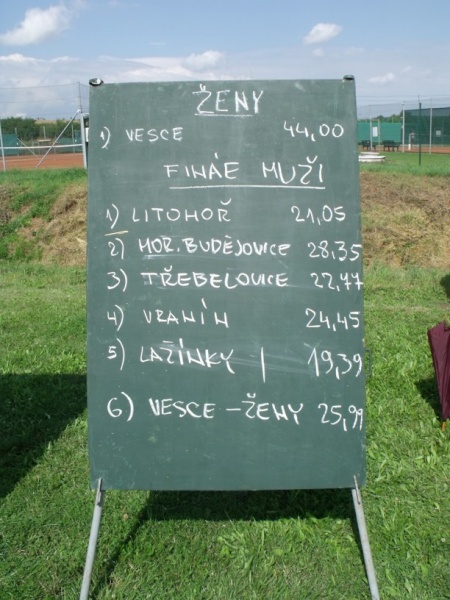 ŽENY
1) VESCE 44,00
FINÁE MUŽI
1) LITOHOŘ 21,05
2) MOR. BUDĚJOVICE 28,35
3) TŘEBELOVICE 22,77
4) VRANÍN 24,45
5) LAŽÍNKY | 19,39
6) VESCE - ŽENY 25,99